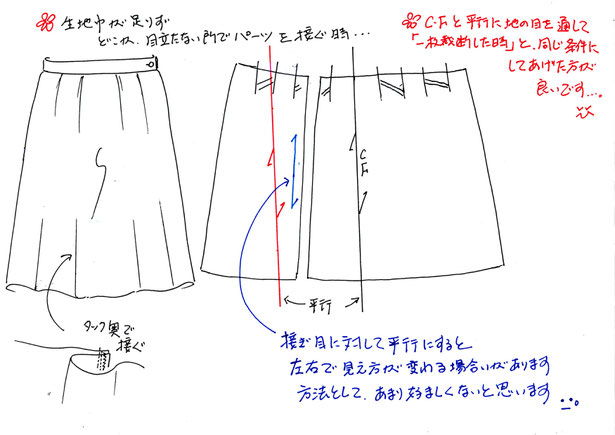 生地巾が足りず
どこか、目立たない所でパーツを接ぐ時…
C.Fと平行に地の目を通して
「一枚裁断した時」と、同じ条件に
してあげた方が
良いです…。
C
F
平行
タック奥で
接ぐ
接ぎ目に対して平行にすると
左右で見え方が変わる場合があります
方法として、あまり好ましくないと思います